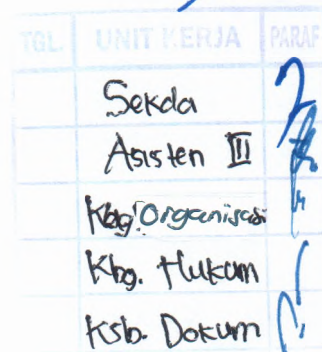 TGL. UNIT KERJA PARAF
Sekda
Asisten III
Kbg. Organisasi
Kbg. Hukum
Ksb. Dokum